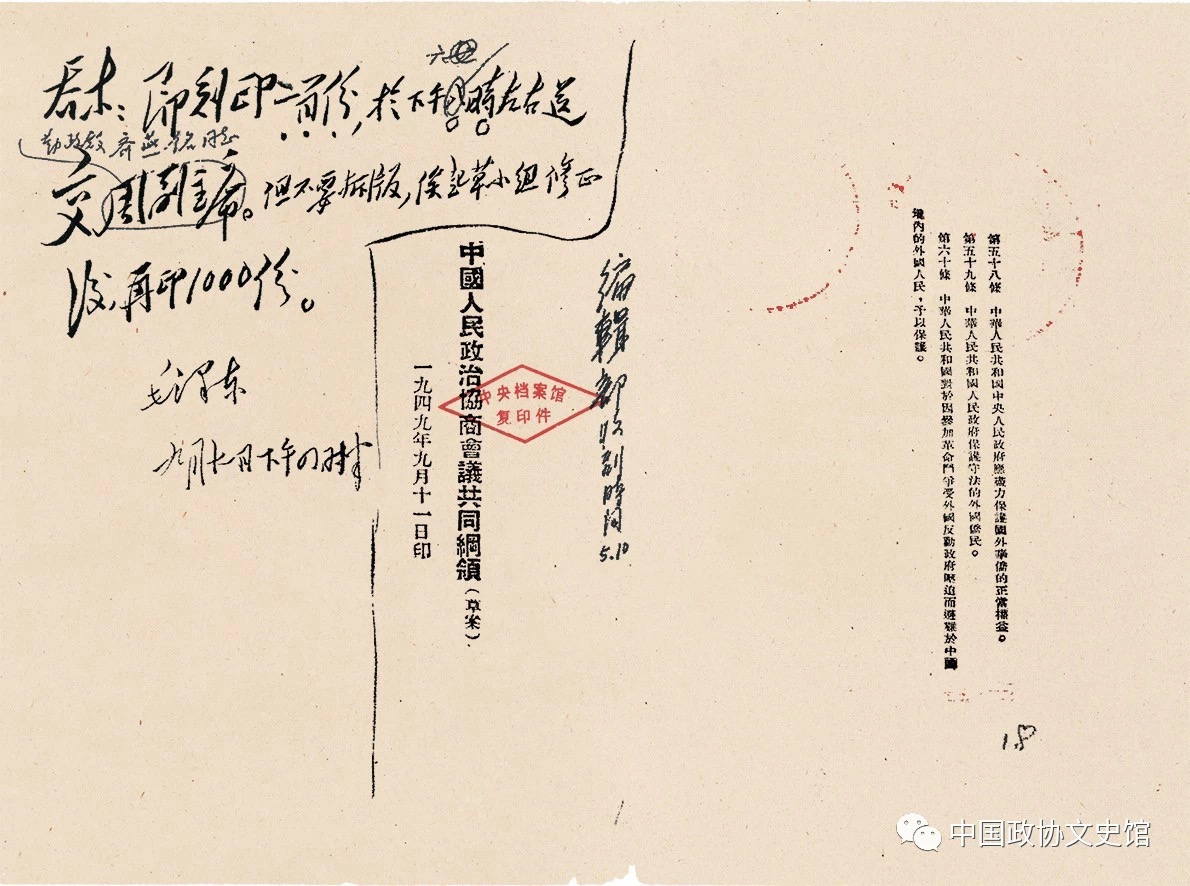 乔木：即刻印一百份，於下午六時左右送
勤政殿齊燕銘同志
交周副主席。但不要拆版，俟起草小组修正
後，再印1000份。
毛泽东
九月
下午
中國人民政治協商會議共同綱領（草案）
一九四九年九月十一日印
中央档案馆
复印件
編輯部
時间
5.10
第五十八條　中華人民共和國中央人民政府應盡力保護國外華僑的正當權益。
第五十九條　中華人民共和國人民政府保護守法的外國僑民。
第六十條　中華人民共和國對於因參加革命鬥爭受外國反動政府壓迫而避難於中國
境內的外國人民，予以保護。
18
中国政协文史馆